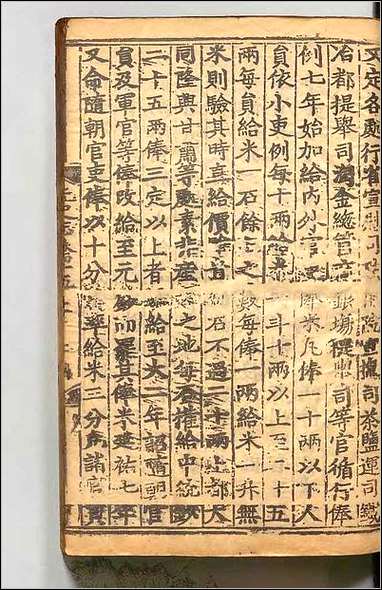 又定各處行省宣慰司 宣撫司茶鹽運司鐵
冶都提舉司淘金總管府銀場提舉司等官循行俸
例七年始加給內外官吏俸米凡俸一十兩以下人
員依小吏例每十兩給米一斗十兩以上至二十五
兩每員給米一石餘上之數每俸一兩給米一升無
米則驗其時直給價雖貴每石不過二十兩上都大
同隆興甘肅等處素非產米之地每石權給中統鈔
二十五兩俸三定以上者不給至大二年詔隨朝官
員及軍官等俸改給至元鈔而罷其俸米延祐七年
又命隨朝官吏俸以十分為率給米三分凡諸官員